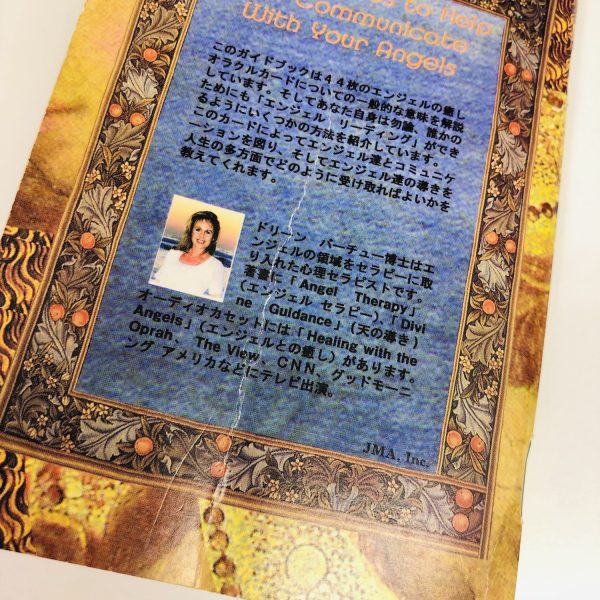 to Help
Communicate
With Your Angels
このガイドブックは44枚のエンジェルの癒し
オラクルカードについての一般的な意味を解説
しています。そしてあなた自身は勿論、誰かの
ためにも「エンジェル リーディング」ができ
るようにいくつかの方法を紹介しています。
このカードによってエンジェル達とコミュニケ
ーションを図り、そしてエンジェル達の導きを
人生の多方面でどのように受け取ればよいかを
教えてくれます。
ドリーン バーチュー博士はエ
ンジェルの領域をセラピーに取
り入れた心理セラピストです。
著書に「Angel Therapy」
(エンジェル セラピー)「Divi
ne Guidance」(天の導き)
オーディオカセットには「Healing with the
Angels」(エンジェルとの癒し)があります。
Oprah、The View、CNN、グッドモーニ
ング アメリカなどにテレビ出演。
JMA, Inc.